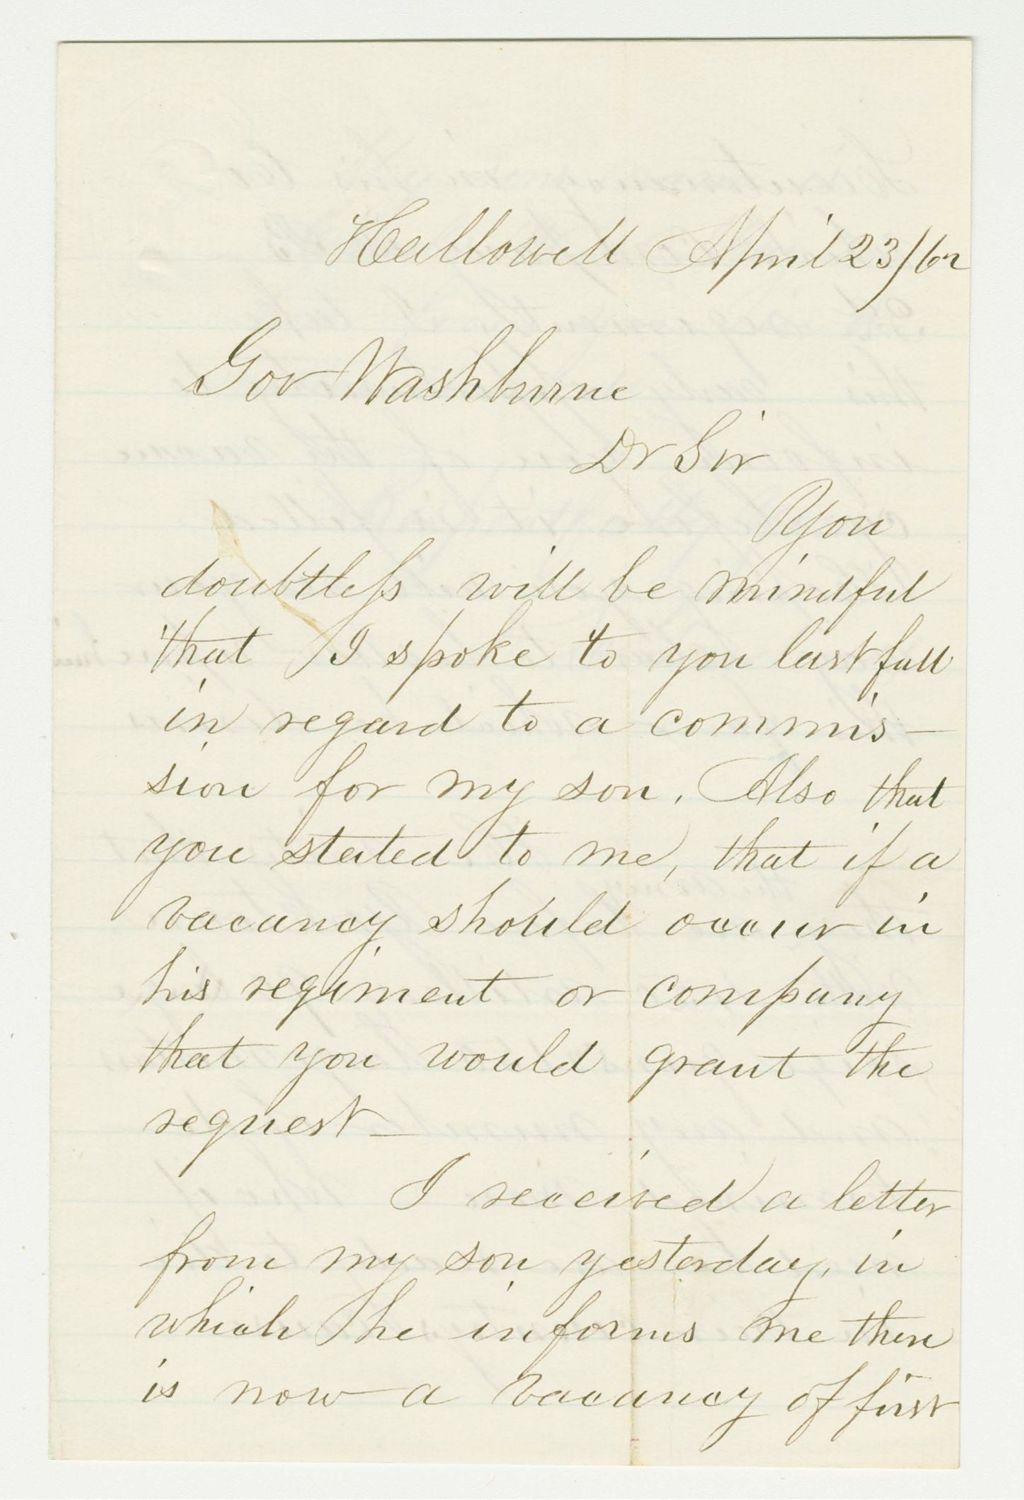 Hallowell April 23/62
Gov Washburne
Dr Sir
You
doubtless will be mindful
that I spoke to you last fall
in regard to a commis-
sion for my son. Also that
you stated to me, that if a
vacancy should occur in
his regiment or company
that you would grant the
request-
I received a letter
from my son yesterday, in
which he informs me there
is now a vacancy of first